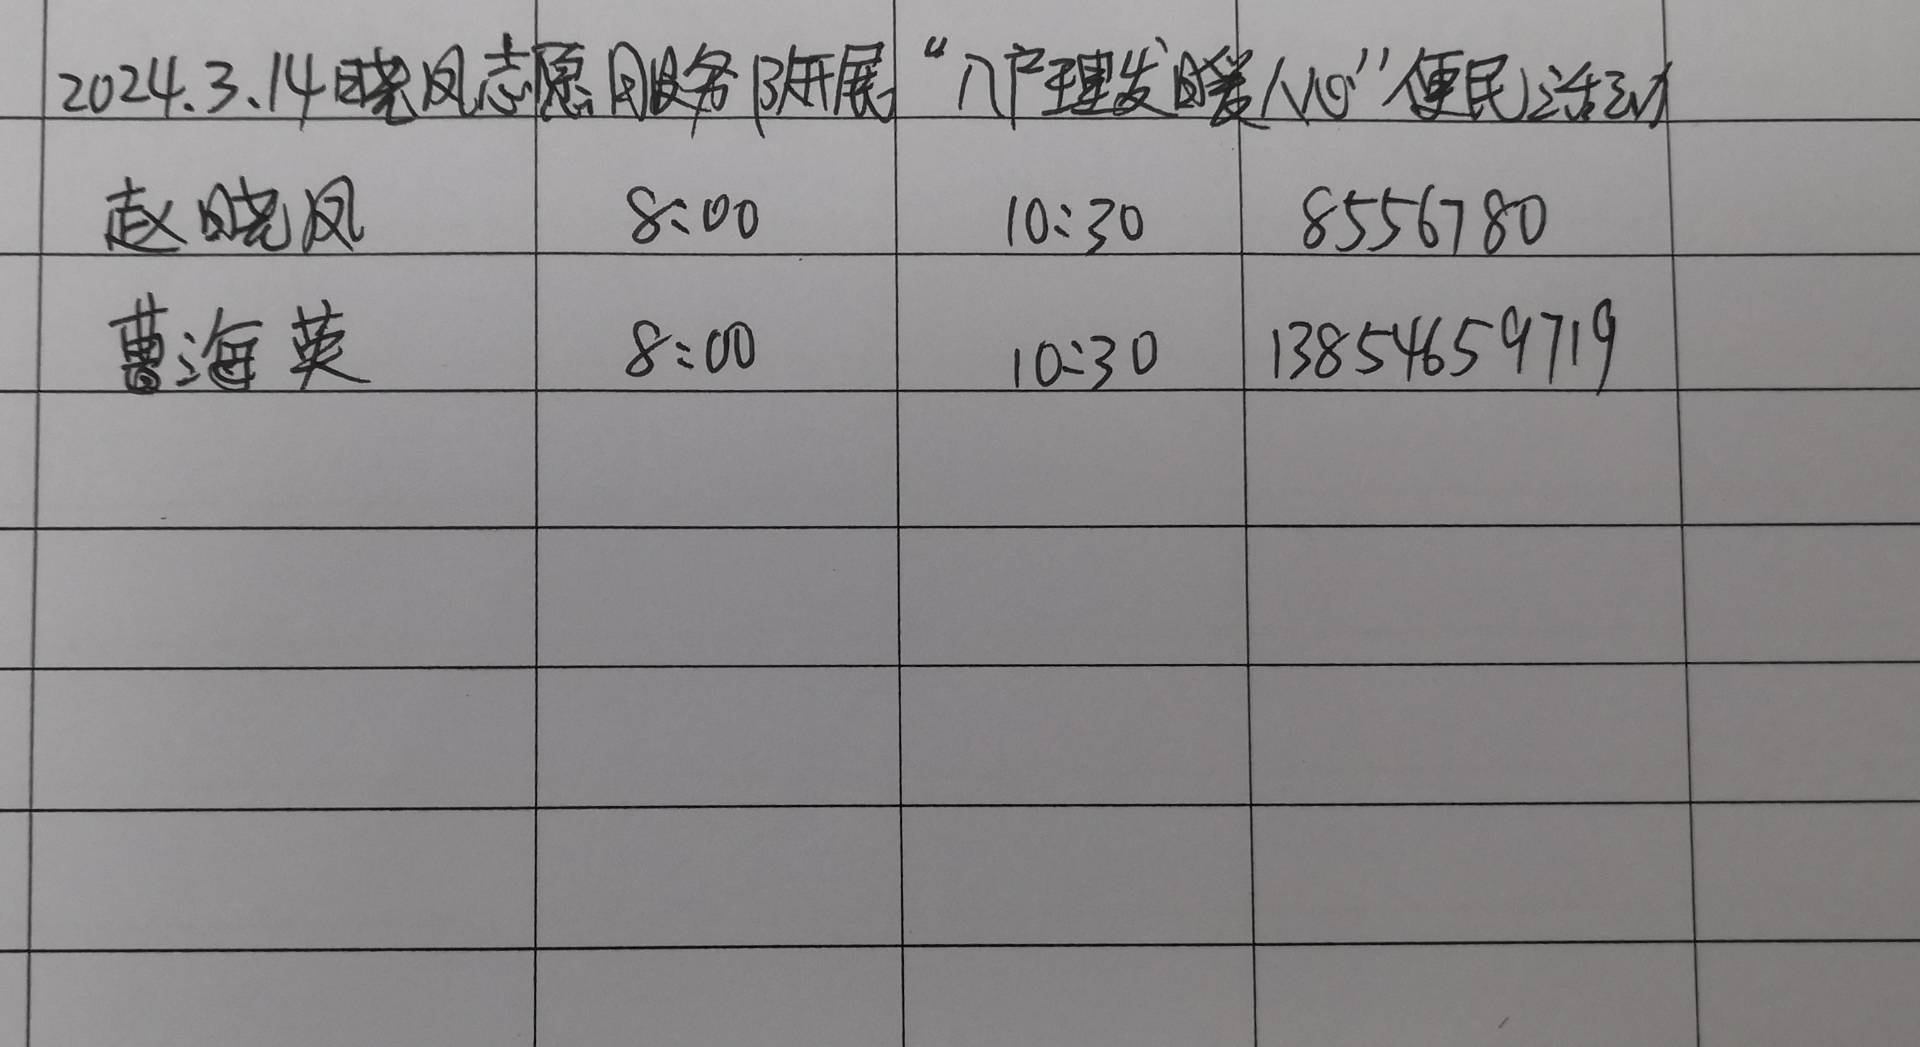 2024.3.14晓凤志愿服务队开展“入户理发暖人心”便民活动
赵晓凤 8:00 10:30 8556780
曹海英 8:00 10:30 13854659719